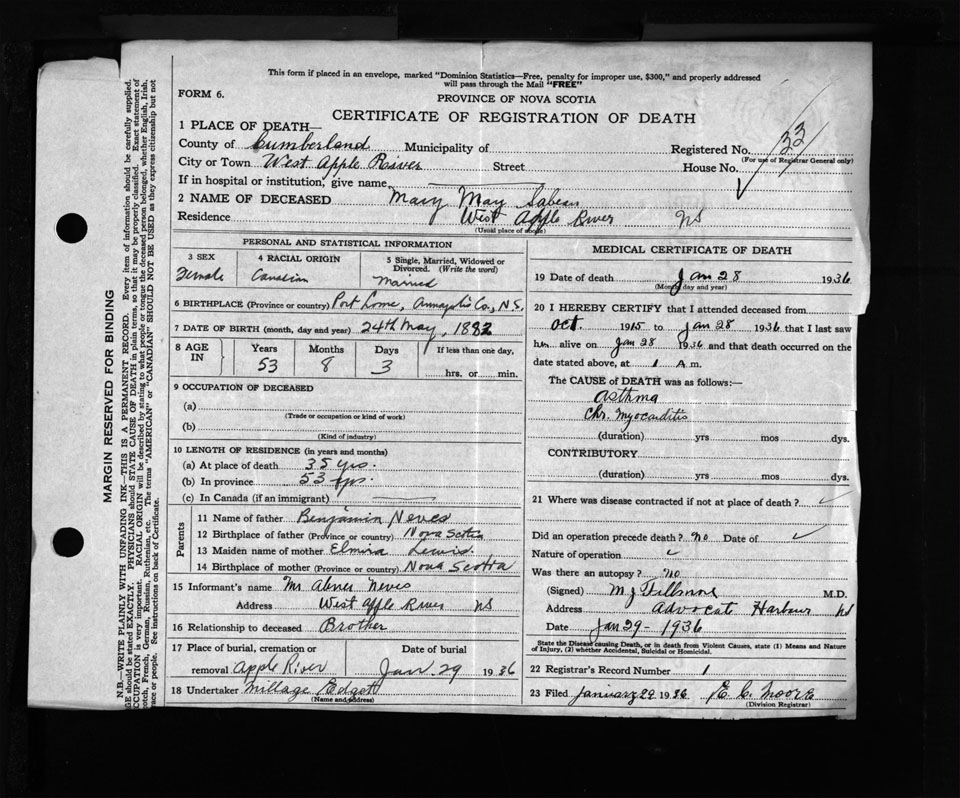 This form if placed in an envelope, marked "Dominion Statistics—Free, penalty for improper use, $300," and properly addressed
will pass through the Mail "FREE"
FORM 6.
PROVINCE OF NOVA SCOTIA
CERTIFICATE OF REGISTRATION OF DEATH
33
1 PLACE OF DEATH—
County of Cumberland Municipality of Registered No.
(For use of Registrar General only)
City or Town West Apple River Street House No.
If in hospital or institution, give name
2 NAME OF DECEASED Mary May Sabean
Residence West Apple River NS
(Usual place of abode)
PERSONAL AND STATISTICAL INFORMATION
3 SEX Female
4 RACIAL ORIGIN Canadian
5 Single, Married, Widowed or Divorced. (Write the word) Married
6 BIRTHPLACE (Province or country) Port Lorne, Annapolis Co., N.S.
7 DATE OF BIRTH (month, day and year) 24th May, 1882
8 AGE IN Years 53 Months 8 Days 3 If less than one day, hrs. or min.
9 OCCUPATION OF DECEASED
(a)
(Trade or occupation or kind of work)
(b)
(Kind of industry)
10 LENGTH OF RESIDENCE (in years and months)
(a) At place of death 35 yrs.
(b) In province 53 yrs.
(c) In Canada (if an immigrant)
Parents
11 Name of father Benjamin Neves
12 Birthplace of father (Province or country) Nova Scotia
13 Maiden name of mother Elmira Lewis.
14 Birthplace of mother (Province or country) Nova Scotia
15 Informant's name Mr Abner Neves
Address West Apple River NS
16 Relationship to deceased Brother
17 Place of burial, cremation or Date of burial
removal Apple River Jan. 29 1936
18 Undertaker Millage Edgett
(Name and address)
MEDICAL CERTIFICATE OF DEATH
19 Date of death Jan 28 1936
(Month, day and year)
20 I HEREBY CERTIFY that I attended deceased from
Oct. 1915 to Jan 28 1936 that I last saw
her alive on Jan 28 1936 and that death occurred on the
date stated above, at 1 A m.
The CAUSE of DEATH was as follows:—
Asthma
Chr. Myocarditis
(duration) yrs mos dys.
CONTRIBUTORY
(duration) yrs mos dys.
21 Where was disease contracted if not at place of death?
Did an operation precede death? No Date of
Nature of operation
Was there an autopsy? No
(Signed) M J Fillmore M.D.
Address Advocate Harbour NS
Date Jan 29 - 1936
State the Disease causing Death, or in death from Violent Causes, state (1) Means and Nature
of Injury, (2) whether Accidental, Suicidal or Homicidal.
22 Registrar's Record Number 1
23 Filed January 29 1936 E. C. Moore
(Division Registrar)
MARGIN RESERVED FOR BINDING
N.B.—WRITE PLAINLY WITH UNFADING INK—THIS IS A PERMANENT RECORD. Every item of information should be carefully supplied.
AGE should be stated EXACTLY. PHYSICIANS should STATE CAUSE OF DEATH in plain terms, so that it may be properly classified. Exact statement of
OCCUPATION is very important. RACIAL ORIGIN will be described by stating to what people or tongue the deceased person belonged, whether English, Irish,
Scotch, French, German, Russian, Ruthenian, etc. The terms "AMERICAN" or "CANADIAN" SHOULD NOT BE USED as they express citizenship but not
race or people. See instructions on back of Certificate.